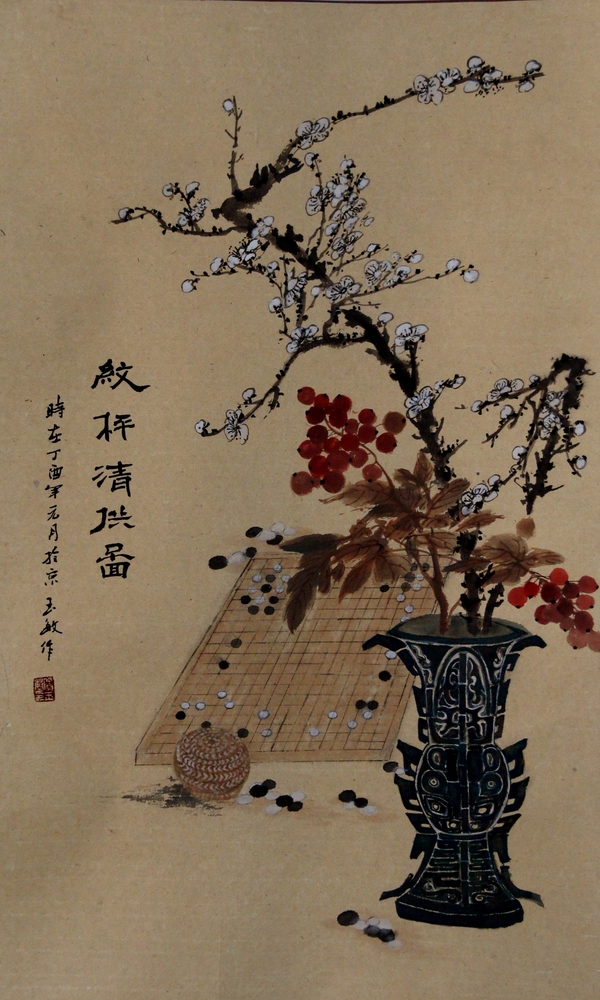 紋枰清供圖
時在丁酉年元月於京玉敏作